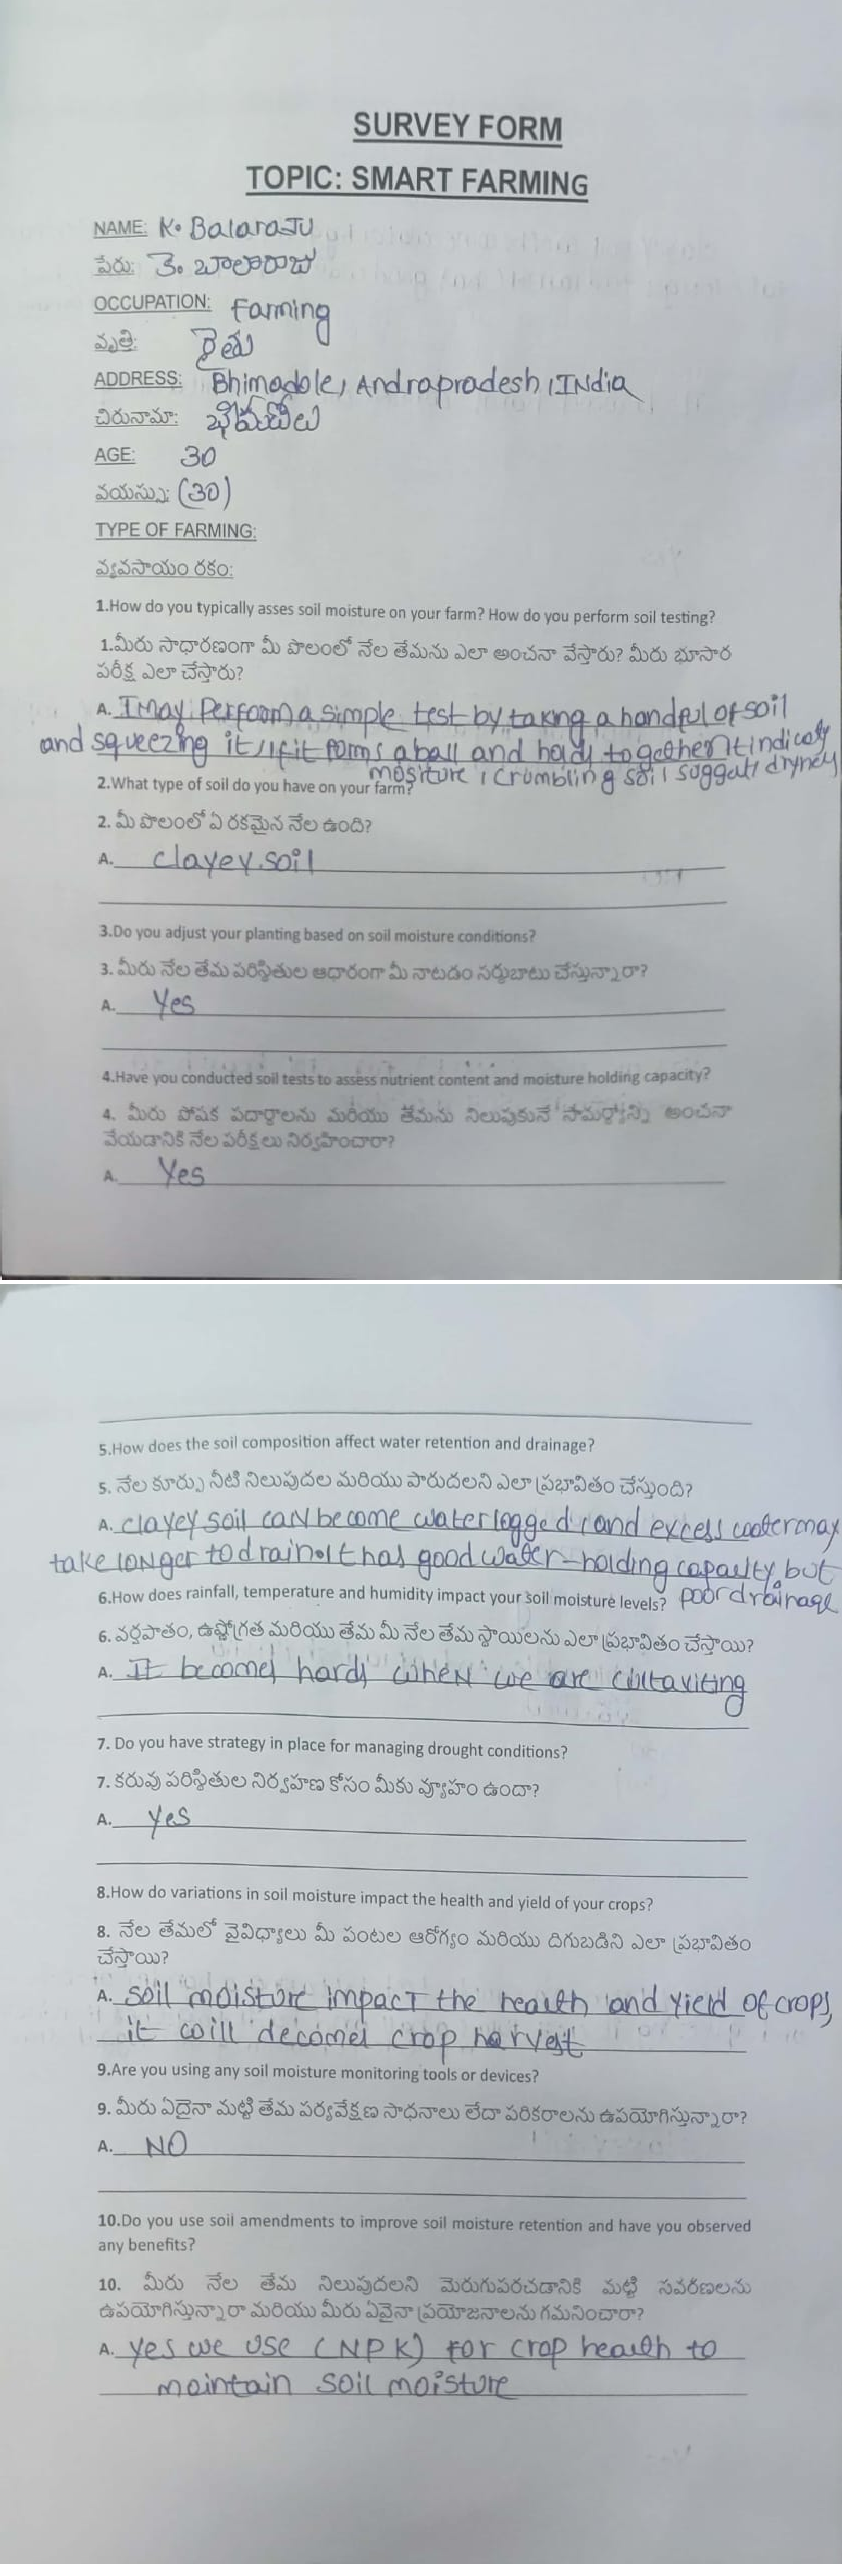 SURVEY FORM
TOPIC: SMART FARMING
NAME: K. BalaraJU
పేరు: కె. బాలరాజు
OCCUPATION: Farming
వృత్తి: రైతు
ADDRESS: Bhimadole, Andrapradesh, INdia
చిరునామా: భీమడోలు
AGE: 30
వయస్సు: (30)
TYPE OF FARMING:
వ్యవసాయం రకం:
1.How do you typically asses soil moisture on your farm? How do you perform soil testing?
1.మీరు సాధారణంగా మీ పొలంలో నేల తేమను ఎలా అంచనా వేస్తారు? మీరు భూసార
పరీక్ష ఎలా చేస్తారు?
A. I may perform a simple test by taking a handful of soil
and squeezing it, if it forms a ball and holds together it indicats
mositure, crumbling soil suggests dryness
2.What type of soil do you have on your farm?
2. మీ పొలంలో ఏ రకమైన నేల ఉంది?
A. clayey soil
3.Do you adjust your planting based on soil moisture conditions?
3. మీరు నేల తేమ పరిస్థితుల ఆధారంగా మీ నాటడం సర్దుబాటు చేస్తున్నారా?
A. Yes
4.Have you conducted soil tests to assess nutrient content and moisture holding capacity?
4. మీరు పోషక పదార్థాలను మరియు తేమను నిలుపుకునే సామర్థ్యాన్ని అంచనా
వేయడానికి నేల పరీక్షలు నిర్వహించారా?
A. Yes
5.How does the soil composition affect water retention and drainage?
5. నేల కూర్పు నీటి నిలుపుదల మరియు పారుదలని ఎలా ప్రభావితం చేస్తుంది?
A. clayey soil caN become waterlogged, and excess water may
take loNger to drain. It has good water-holding capacity, but
poor drainage
6.How does rainfall, temperature and humidity impact your soil moisture levels?
6. వర్షపాతం, ఉష్ణోగ్రత మరియు తేమ మీ నేల తేమ స్థాయిలను ఎలా ప్రభావితం చేస్తాయి?
A. It becomes hards wheN we are cultaviting
7. Do you have strategy in place for managing drought conditions?
7. కరువు పరిస్థితుల నిర్వహణ కోసం మీకు వ్యూహం ఉందా?
A. Yes
8.How do variations in soil moisture impact the health and yield of your crops?
8. నేల తేమలో వైవిధ్యాలు మీ పంటల ఆరోగ్యం మరియు దిగుబడిని ఎలా ప్రభావితం
చేస్తాయి?
A. soil moisture impacT the health and yield of crops,
it will decomes crop harvest
9.Are you using any soil moisture monitoring tools or devices?
9. మీరు ఏదైనా మట్టి తేమ పర్యవేక్షణ సాధనాలు లేదా పరికరాలను ఉపయోగిస్తున్నారా?
A. NO
10.Do you use soil amendments to improve soil moisture retention and have you observed
any benefits?
10. మీరు నేల తేమ నిలుపుదలని మెరుగుపరచడానికి మట్టి సవరణలను
ఉపయోగిస్తున్నారా మరియు మీరు ఏవైనా ప్రయోజనాలను గమనించారా?
A. yes we use (NPK) for crop health to
maintain soil moisture